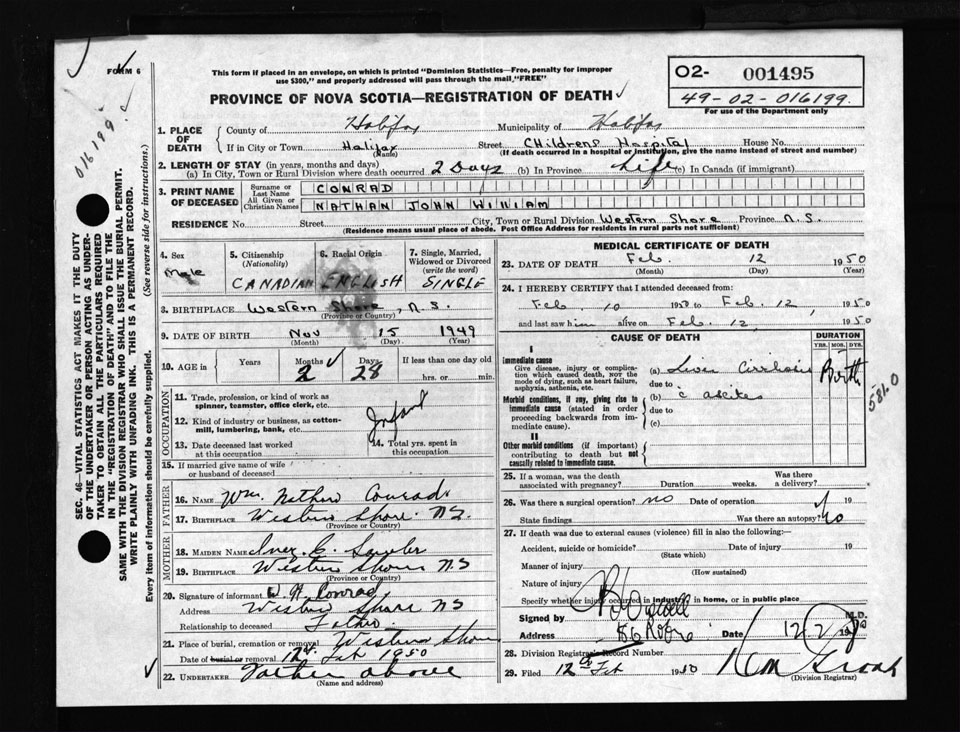 FORM 6
This form if placed in an envelope, on which is printed "Dominion Statistics—Free, penalty for improper
use $300," and properly addressed will pass through the mail, "FREE"
PROVINCE OF NOVA SCOTIA—REGISTRATION OF DEATH
O2- 001495
49-02-016199.
For use of the Department only
016199
1. PLACE OF DEATH
County of Halifax Municipality of Halifax
If in City or Town Halifax (Name) Street Childrens Hospital House No.
(If death occurred in a hospital or institution, give the name instead of street and number)
2. LENGTH OF STAY (in years, months and days)
(a) In City, Town or Rural Division where death occurred 2 Days (b) In Province Life (c) In Canada (if immigrant)
3. PRINT NAME OF DECEASED
Surname or Last Name CONRAD
All Given or Christian Names NATHAN JOHN WILLIAM
RESIDENCE No. Street City, Town or Rural Division Western Shore Province N.S.
(Residence means usual place of abode. Post Office Address for residents in rural parts not sufficient)
4. Sex Male
5. Citizenship (Nationality) CANADIAN
6. Racial Origin ENGLISH
7. Single, Married, Widowed or Divorced (write the word) SINGLE
8. BIRTHPLACE Western Shore, N.S.
(Province or Country)
9. DATE OF BIRTH Nov 15 1949
(Month) (Day) (Year)
10. AGE in Years Months 2 Days 28 If less than one day old
hrs. or min.
OCCUPATION
11. Trade, profession, or kind of work as spinner, teamster, office clerk, etc.
12. Kind of industry or business, as cotton-mill, lumbering, bank, etc.
Infant
13. Date deceased last worked at this occupation
14. Total yrs. spent in this occupation
15. If married give name of wife or husband of deceased
FATHER
16. NAME Wm. Nathan Conrad
17. BIRTHPLACE Western Shore N.S.
(Province or Country)
MOTHER
18. MAIDEN NAME Inez E.
19. BIRTHPLACE Western Shore N S
(Province or Country)
20. Signature of informant W. N. Conrad
Address Western Shore N S
Relationship to deceased Father
21. Place of burial, cremation or removal Western Shore
Date of burial or removal 12 Feb 1950
22. UNDERTAKER Father above
(Name and address)
MEDICAL CERTIFICATE OF DEATH
23. DATE OF DEATH Feb. 12 1950
(Month) (Day) (Year)
24. I HEREBY CERTIFY that I attended deceased from:
Feb. 10 1950 to Feb. 12, 1950
and last saw him alive on Feb. 12, 1950
CAUSE OF DEATH
DURATION
YRS. MOS. DYS.
I
Immediate cause
Give disease, injury or complication which caused death, NOT the mode of dying, such as heart failure, asphyxia, asthenia, etc.
(a) Liver Cirrhosis Birth
due to
Morbid conditions, if any, giving rise to immediate cause (stated in order proceeding backwards from immediate cause).
(b) c ascites
due to
(c)
581.0
II
Other morbid conditions (if important) contributing to death but not causally related to immediate cause.
25. If a woman, was the death associated with pregnancy? Duration weeks. Was there a delivery?
26. Was there a surgical operation? NO Date of operation 19
State findings Was there an autopsy? No
27. If death was due to external causes (violence) fill in also the following:
Accident, suicide or homicide? Date of injury 19
(State which)
Manner of injury
(How sustained)
Nature of injury
Specify whether injury occurred in industry, in home, or in public place
Signed by M.D.
Address Date 12/2/
28. Division Registrar's Record Number
29. Filed 12th Feb 1950
(Division Registrar)
SEC. 46—VITAL STATISTICS ACT MAKES IT THE DUTY
OF THE UNDERTAKER OR PERSON ACTING AS UNDER-
TAKER TO OBTAIN ALL THE PARTICULARS REQUIRED
IN THE "REGISTRATION OF DEATH" AND TO FILE THE
SAME WITH THE DIVISION REGISTRAR WHO SHALL ISSUE THE BURIAL PERMIT.
WRITE PLAINLY WITH UNFADING INK. THIS IS A PERMANENT RECORD.
Every item of information should be carefully supplied. (See reverse side for instructions.)